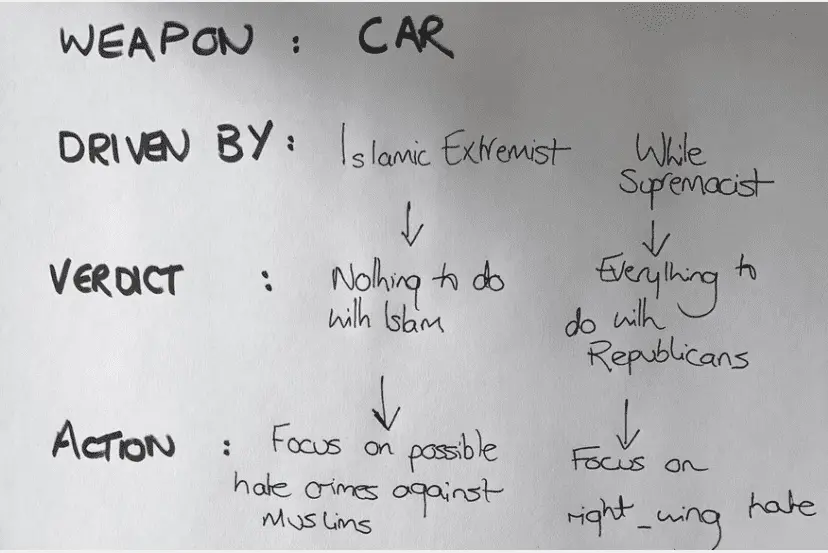 WEAPON : CAR
DRIVEN BY : Islamic Extremist
White
Supremacist
VERDICT :
Nothing to do
with Islam
Everything to
do with
Republicans
ACTION :
Focus on possible
hate crimes against
Muslims
Focus on
right_wing hate